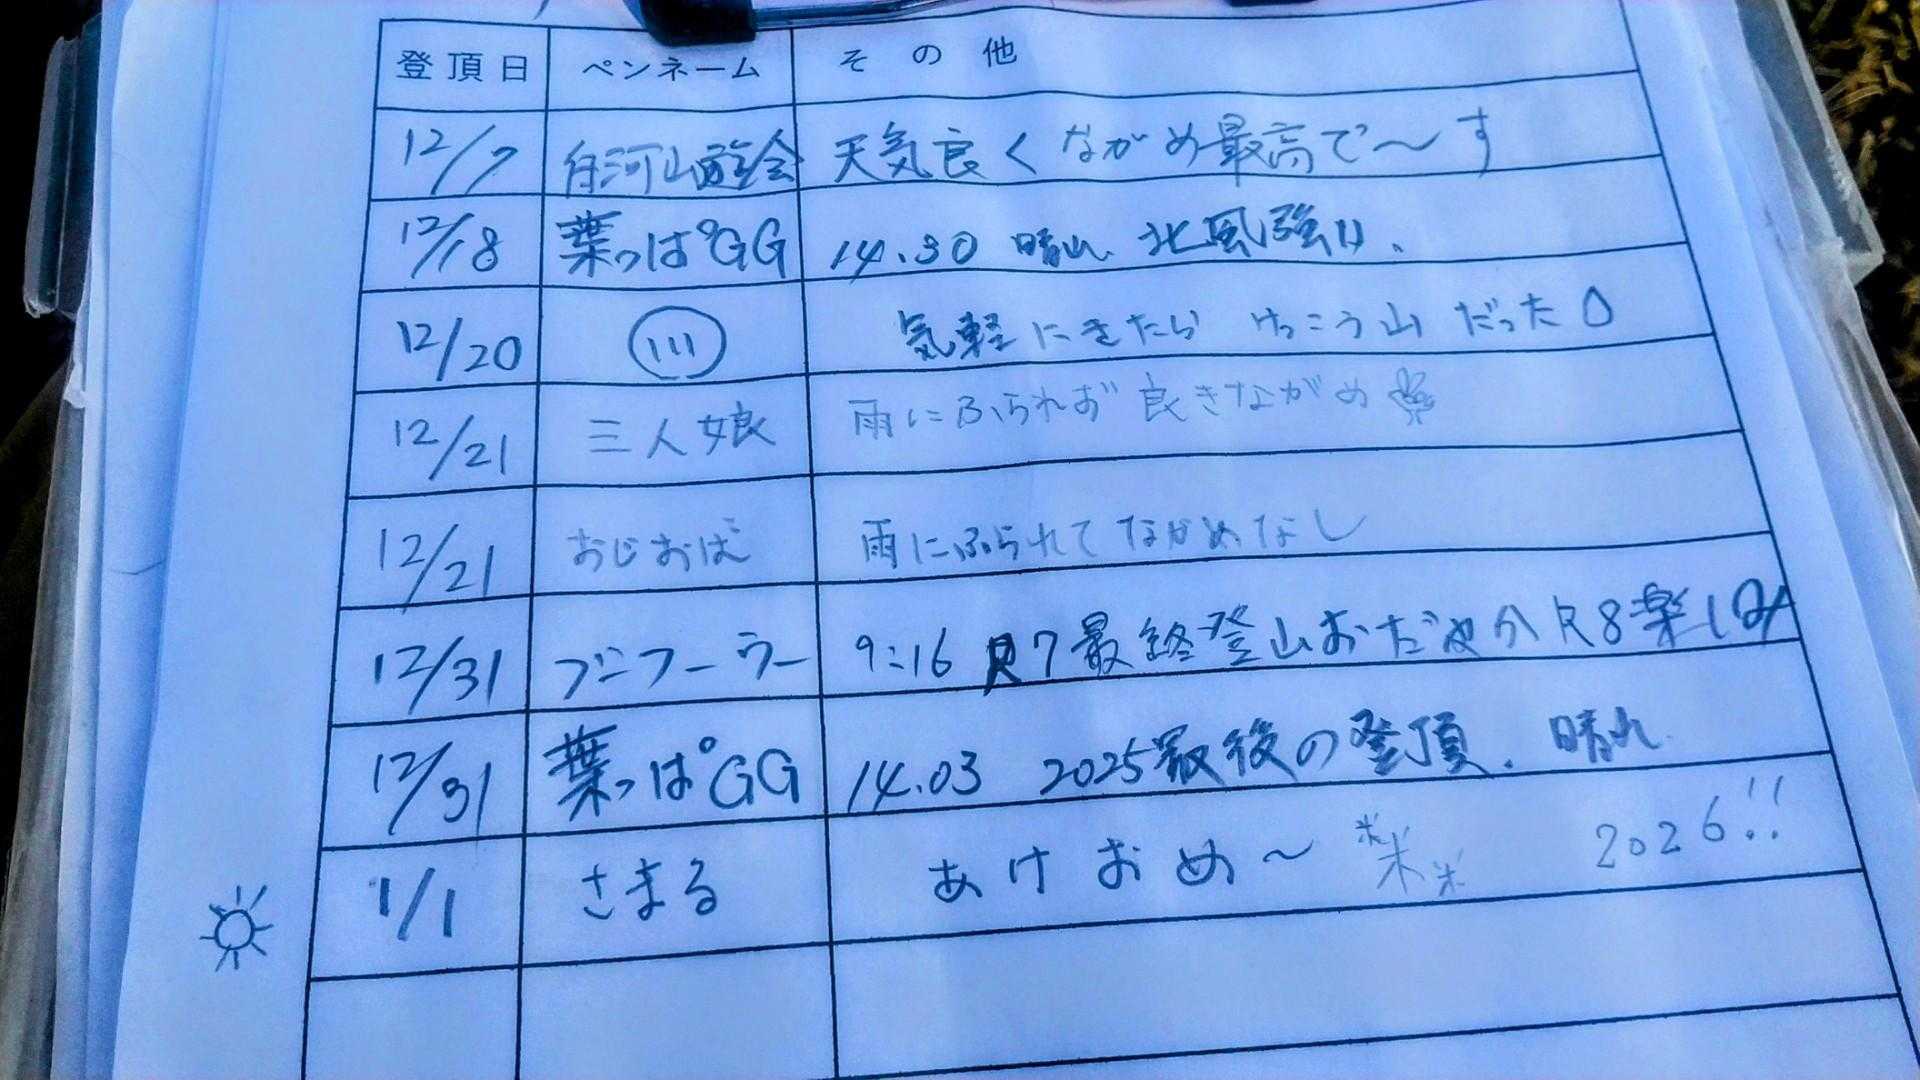 登頂日 ペンネーム その他
12/7 白河山遊会 天気良く ながめ最高で〜す
12/18 葉っぱGG 14.30 晴れ. 北風強い.
12/20 気軽にきたら けっこう山 だった
12/21 三人娘 雨にふられず 良きながめ
12/21 おじおば 雨にふられて ながめなし
12/31 ブニフーラー 9:16 R7最終登山おだやか R8楽しみ
12/31 葉っぱGG 14.03 2025最後の登頂. 晴れ
1/1 さまる あけおめ〜 2026!!